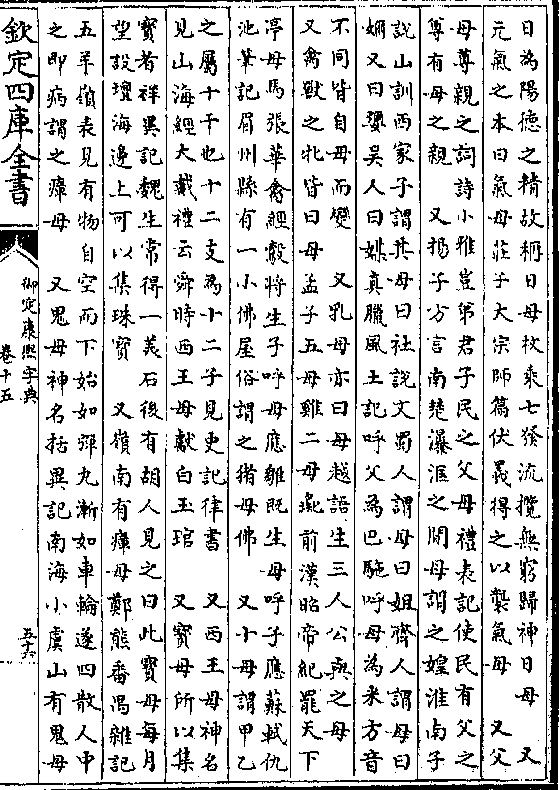 日為陽德之精故稱日母枚乘七發流攬無窮歸神日母　又
元氣之本曰氣母莊子大宗師篇伏羲得之以襲氣母　又父
母尊親之詞詩小雅豈弟君子民之父母禮表記使民有父之
尊有母之親　又揚子方言南楚瀑洭之閒母謂之媓淮南子
說山訓西家子謂其母曰社說文蜀人謂母曰姐齊人謂母曰
㜷又曰㜲吳人曰媒真臘風土記呼父為巴馳呼母為米方音
不同皆自母而變　又乳母亦曰母越語生三人公與之母
又禽獸之牝皆曰母孟子五母雞二母彘前漢昭帝紀罷天下
渟母馬張華禽經鷇將生子呼母應雛既生母呼子應蘇軾仇
池筆記眉州縣有一小佛屋俗謂之猪母佛　又十母謂甲乙
之屬十干也十二支為十二子見史記律書　又西王母神名
見山海經大戴禮云舜時西王母獻白玉琯　又寶母所以集
寶者祥異記魏生常得一美石後有胡人見之曰此寶母每月
望設壇海邊上可以集珠寶　又嶺南有瘴母鄭熊番禺雜記
五羊嶺表見有物自空而下始如彈丸漸如車輪遂四散人中
之即病謂之瘴母　又鬼母神名括異記南海小虞山有鬼母
欽定四庫全書
御定康熙字典
卷十五
五十六